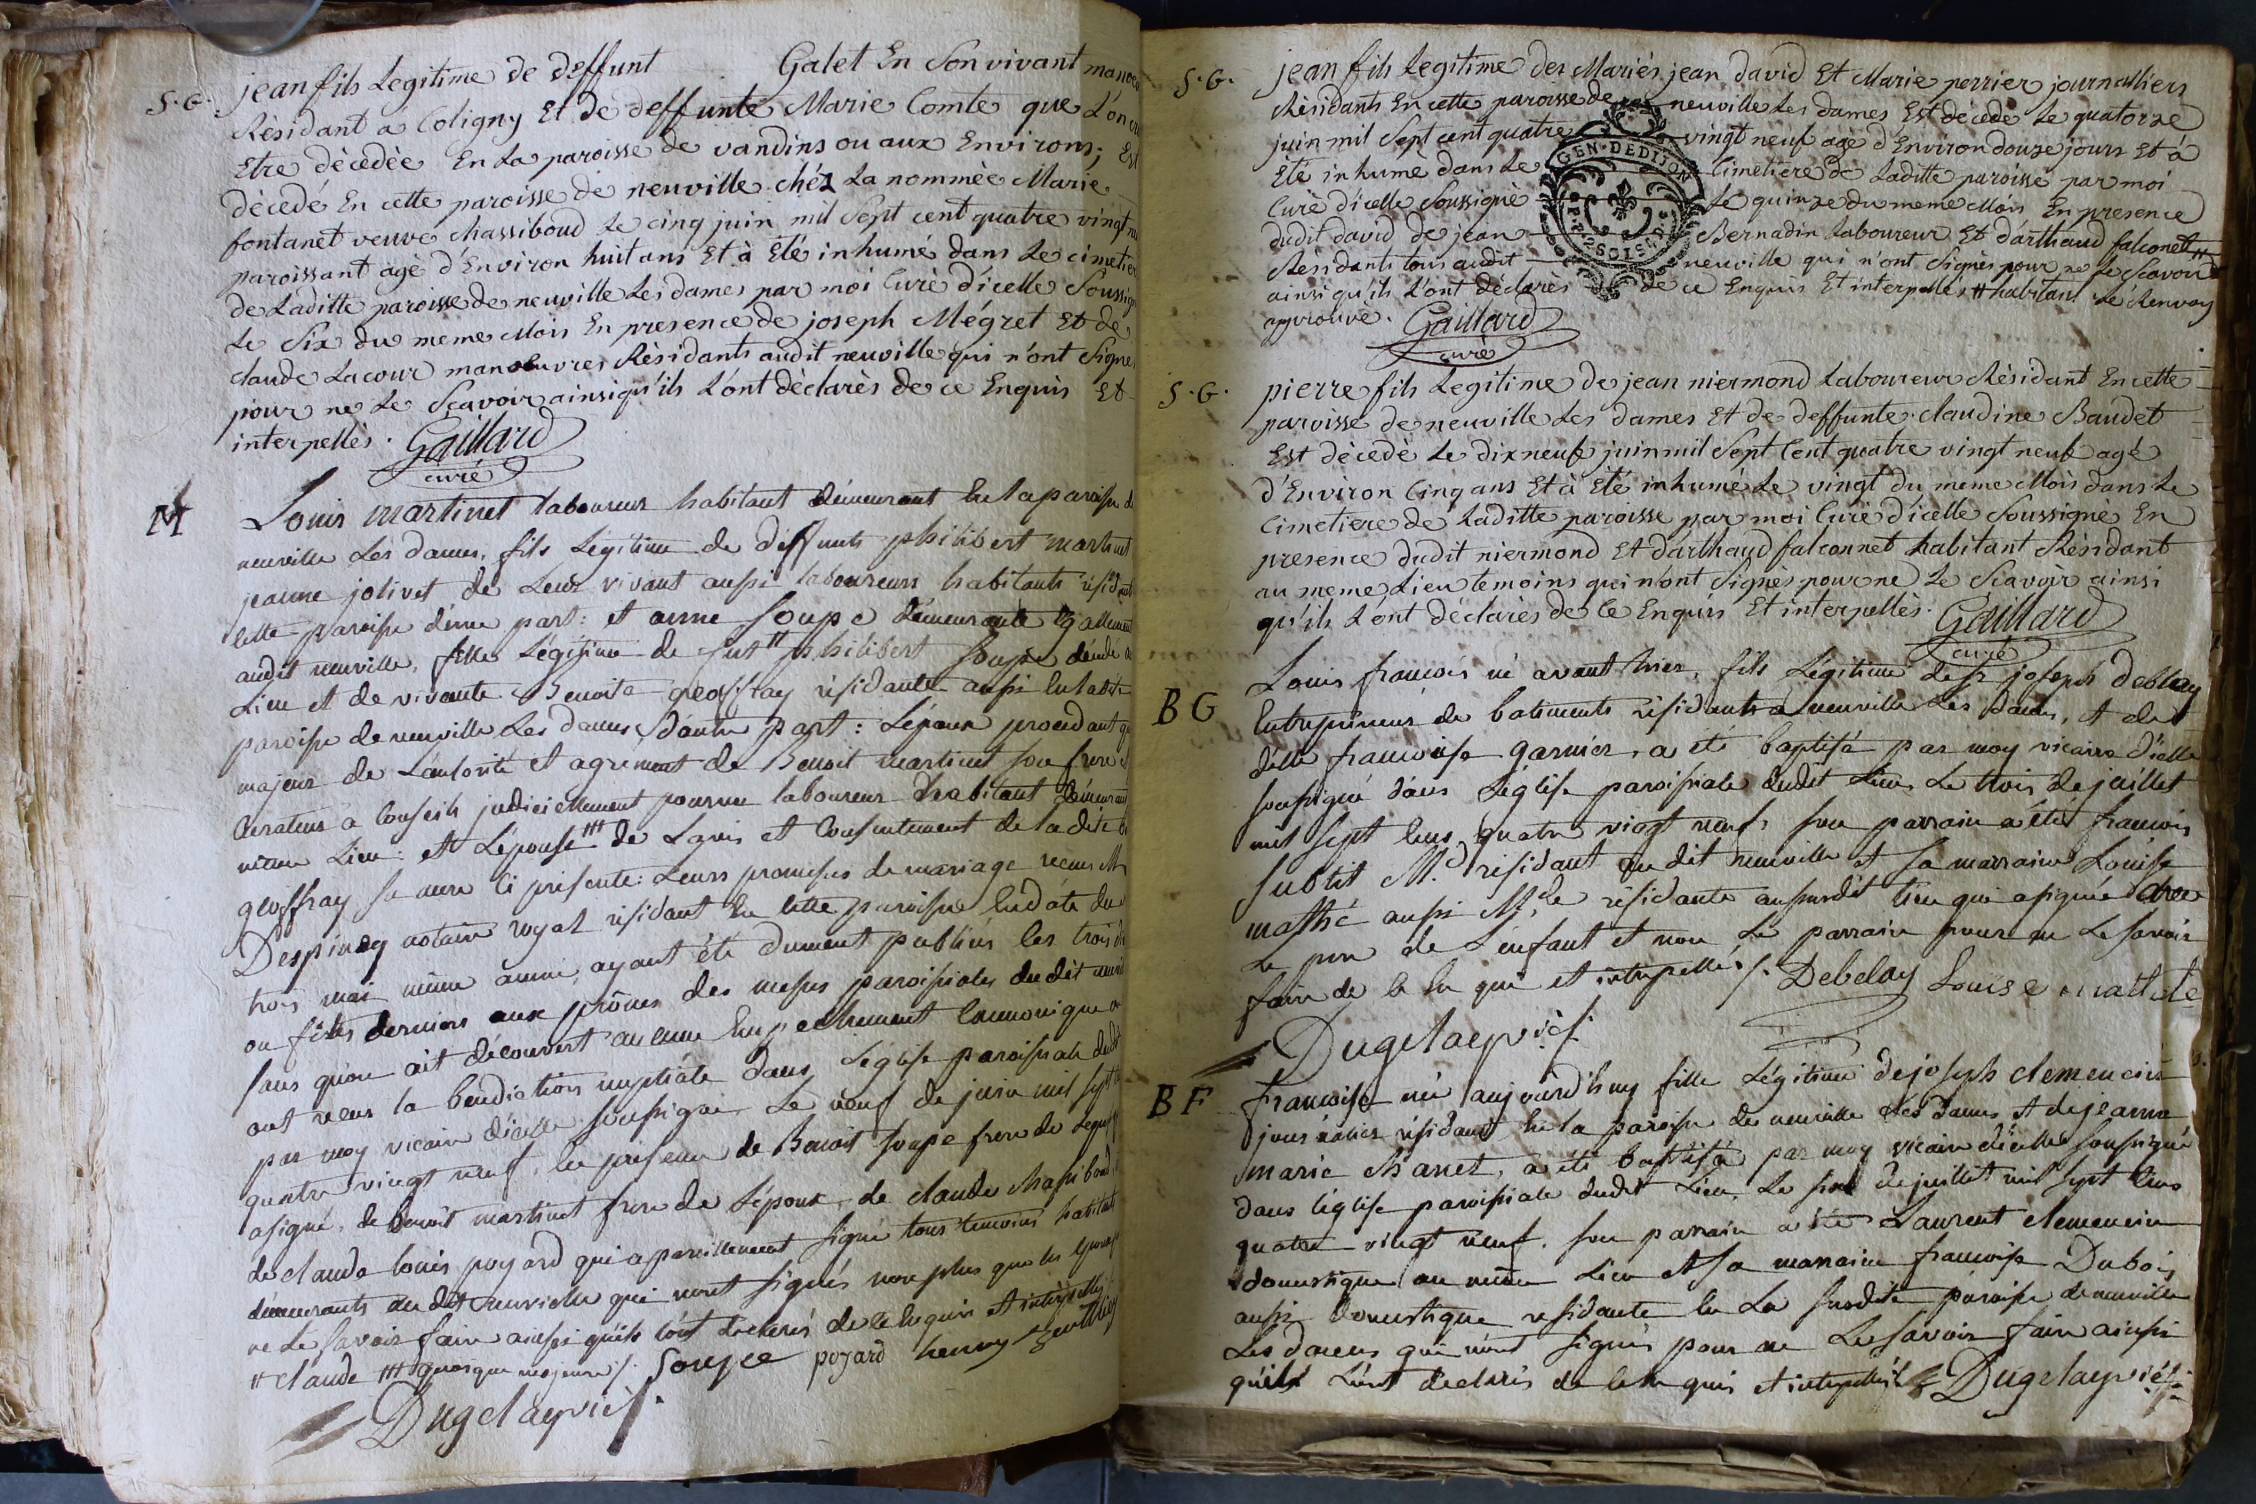 S. G. jean fils Legitime de deffunt Galet En Son vivant manoeu
Rèsidant a Coligny Et de deffunte Marie Comte que L'on
Etre dècedèe En La paroisse de vandins ou aux Environs; Est
dècedé En cette paroisse de neuville chéz La nommèe Marie
fontanet veuve chassiboud Le cinq juin mil Sept cent quatre vingt
paroissant agè d'Environ huit ans Et à Eté inhumé dans Le cimetie
de Laditte paroisse de neuville Les dames par moi Curè d'icelle Soussig
Le Six du meme Mois En presence de joseph Mégret Et de
claude Lacour manoeuvres Rèsidants audit neuville qui n'ont Signe
pour ne Le Sçavoir ainsiqu'ils L'ont dèclarès de ce Enquis Et
interpellès. Gaillard
curé
M Louis martinet laboureur habitant démeurant En la paroisse de
neuville Les dames, fils Légitime de deffunts philibert martinet
jeanne jolivet de Leur vivant aussi laboureurs habitants résidants
cette paroisse d'une part: et anne Soupe démeurante Egallement
audit neuville, fille Légitime de fut # philibert Soupe décédé
Lieu et de vivante Benoite geoffray résidante aussi En ladite
paroisse de neuville Les dames d'autre part: L'époux procedant
majeur de L'autorité et agrément de Benoit martinet son frere
Curateur à Conseils judiciellement pourvu laboureur habitant démeurant
même Lieu: et L'épouse ## de L'avis et Consentement de la dite
geoffray sa mere Ci présente: Leurs promesses de mariage recues Me
Despiney notaire royal résidant En cette paroisse En date du
trois mai même année, ayant été dument publiées les trois
ou fêtes derniers aux prônes des messes paroissiales du dit neuvil
sans qu'on ait découvert aucune Empechement Canonique
ont recus la bénédiction nuptiale dans L'église paroissiale dudit
par moy vicaire d'icelle soussigné Le neuf de juin mil sept
quatre vingt neuf, En présence de Benoit Soupe frere de L'épouse
a signé, de benoit martinet frere de L'époux, de claude chassiboud
de claude Louis poyard qui a pareillement signé tous temoins habitants
démeurants audit neuville qui n'ont signés non plus que les Epoux
ne Le savoir faire ainssi qu'ils l'ont déclarés de ce Enquis et interpellés
# claude ## quoique majeure /. Soupe poyard henry
Dugelay vic/.
S. G. jean fils Legitime des Mariès jean david Et Marie perrier journalliers
Rèsidants En cette paroisse de neuville Les dames Est dècedè Le quatorze
juin mil Sept cent quatre vingt neuf agè d'Environ douze jours Et à
Eté inhumè dans Le Cimetiere de Laditte paroisse par moi
Curè d'icelle Soussignè Le quinze du meme Mois En presence
dudit david de jean Bernadin Laboureur Et d'arthaud falconet #
Rèsidants tous audit neuville qui n'ont Signès pour ne Le Scavoir
ainsi qu'ils L'ont dèclarès de ce Enquis Et interpellès # habitant Le Renvoy
approuvè. Gaillard
curè
GEN. DE DIJON
2 SOLS
S. G. pierre fils Legitime de jean niermond Laboureur Rèsidant En cette
paroisse de neuville Les dames Et de deffunte claudine Baudet
Est dècedè Le dix neuf juin mil Sept Cent quatre vingt neuf agé
d'Environ Cinq ans Et à Eté inhumé Le vingt du meme Mois dans Le
Cimetiere de Laditte paroisse par moi Curè d'icelle Soussignè En
presence dudit niermond Et d'arthaud falconnet habitant Rèsidant
au meme Lieu temoins qui n'ont Signès pour ne Le Scavoir ainsi
qu'ils L'ont dèclarès de Ce Enquis Et interpellès. Gaillard
curè
BG Louis francois né avant hier, fils Légitime de Sr joseph Deblay
Entrepreneur de batiments résidants à neuville Les dames, et de
delle francoise garnier, a été baptisé par moy vicaire d'icelle
soussigné dans L'église paroissiale dudit Lieu Le trois de juillet
mil sept Cens quatre vingt neuf, son parrain a été francois
Subtit Md. résidant au dit neuville et sa marraine Louise
mathé aussi Mde résidante au susdit Lieu qui a signé avec
Le pere de L'enfant et non Le parrain pour ne Le savoir
faire de ce En quis et interpellés /. Debelay Louise mathe
Dugelay vic/.
BF francoise née aujourd'huy fille Légitime de joseph clemencin
journalier résidant En la paroisse de neuville Les Dames et de jeanne
marie Chanet, a été baptisée par moy vicaire d'icelle soussigné
dans L'église paroissiale dudit Lieu, Le six de juillet mil sept Cens
quatre vingt neuf. son parrain a été Laurent clemencin
domestique au même Lieu et sa marraine francoise Dubois
aussi domestique résidante En La susdite paroisse de neuville
Les dames qui n'ont signés pour ne Le savoir faire ainssi
qu'ils L'ont declarés de ce En quis et interpellés /. Dugelay vic/.